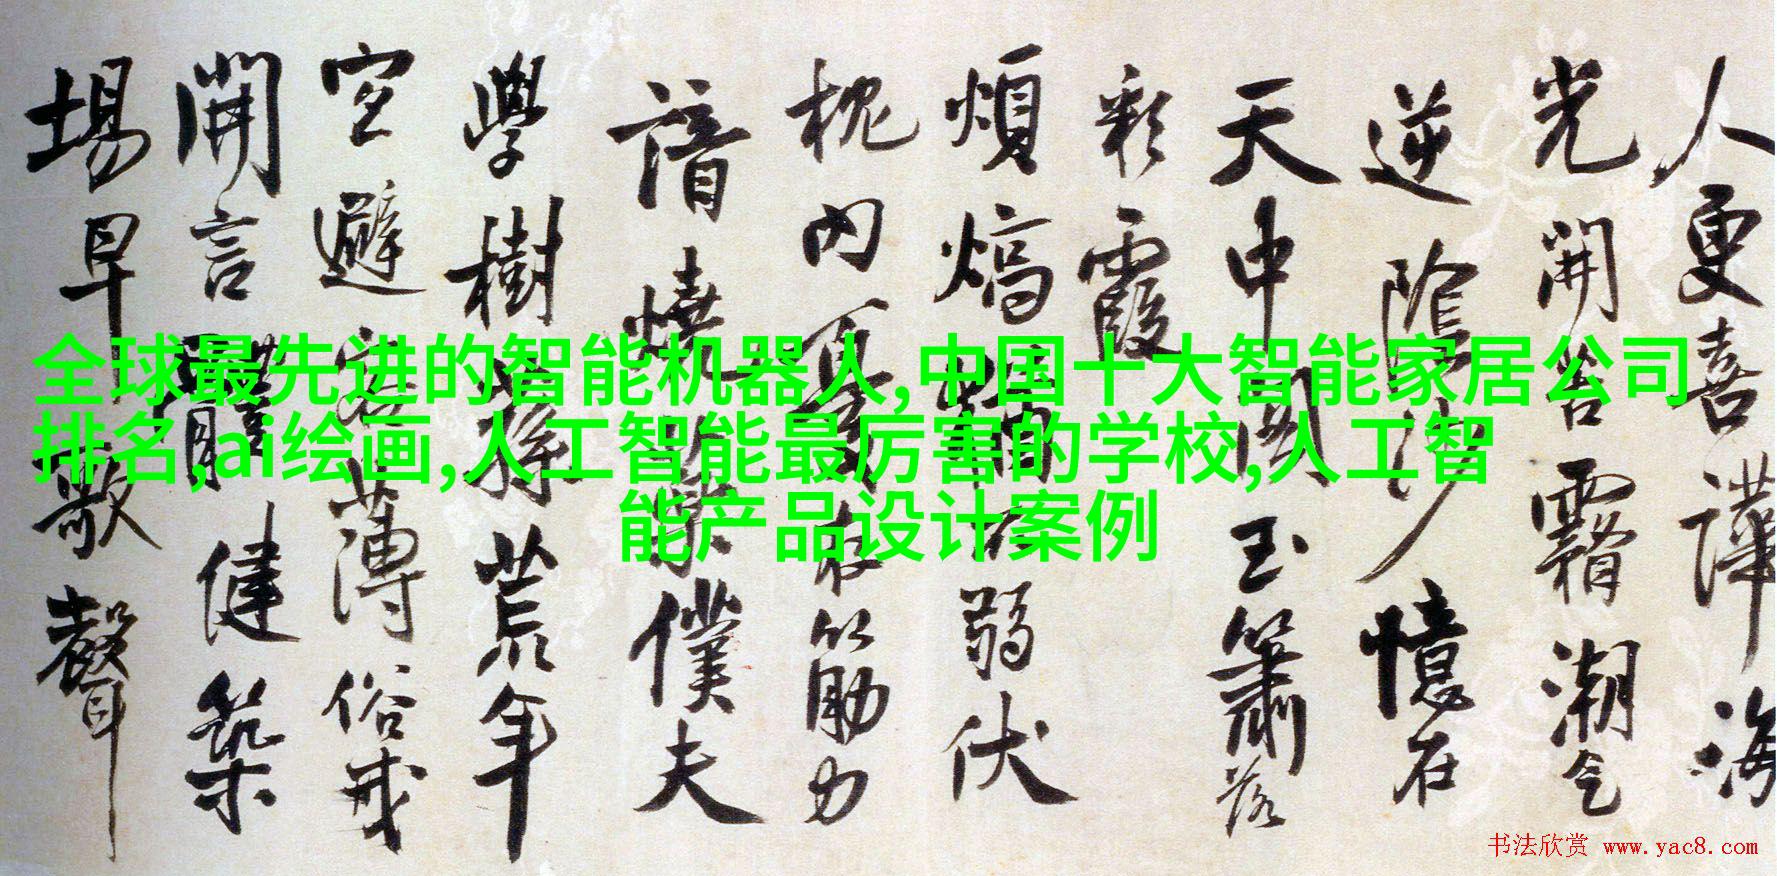 全球最先进的智能机器人,中国十大智能家居公司
排名,ai绘画,人工智能最厉害的学校,人工智
能产品设计案例
人更喜譁海
光開潮
逆陰沙憶在
天中玉簫落
彩霞
煩熇弱伏
枕內筋力
燒僕夫
學樹荒年
空避薄俗
開言健築
場早歇聲
书法欣赏 www.yac8.com